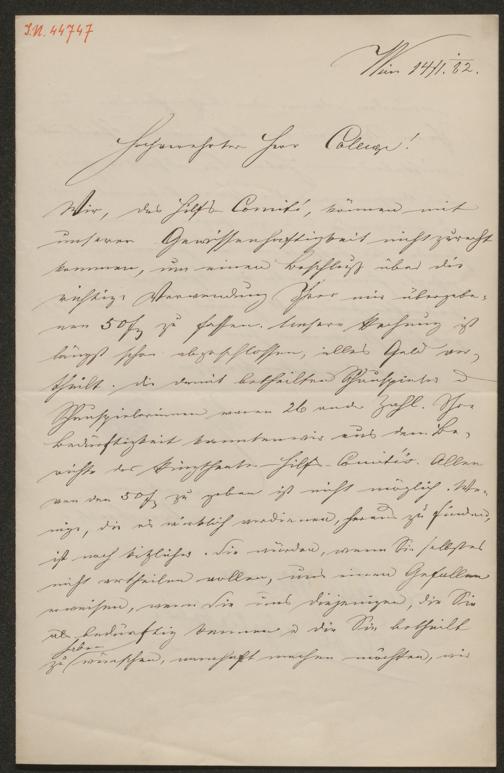 I.N. 44747
Wien 14/1. 82.
Hochverehrter Herr College!
Wir, das Hilfs-Comité, können mit
unserer Gewissenhaftigkeit nicht zurecht
kommen, um einen Beschluß über die
richtige Verwendung Ihrer mir übergebe-
nen 50 fl zu fassen. Unsere Rechnung ist
längst schon abgeschlossen, alles Geld ver-
theilt. Die damit betheilten Schauspieler u
Schauspielerinnen waren 26 an der Zahl. Ihre
Bedürftigkeit kannten wir aus dem Be-
richte des Ringtheater-Hilfs-Comités. Allen
von den 50 fl zu geben ist nicht möglich. We-
nige, die es wirklich verdienen, heraus zu finden,
ist noch kitzlicher. Sie würden, wenn Sie selbst es
nicht vertheilen wollen, uns einen Gefallen
erweisen, wenn Sie uns diejenigen, die Sie
als bedürftig kennen u die Sie betheilt
zu haben wünschen, namhaft machen möchten, wir